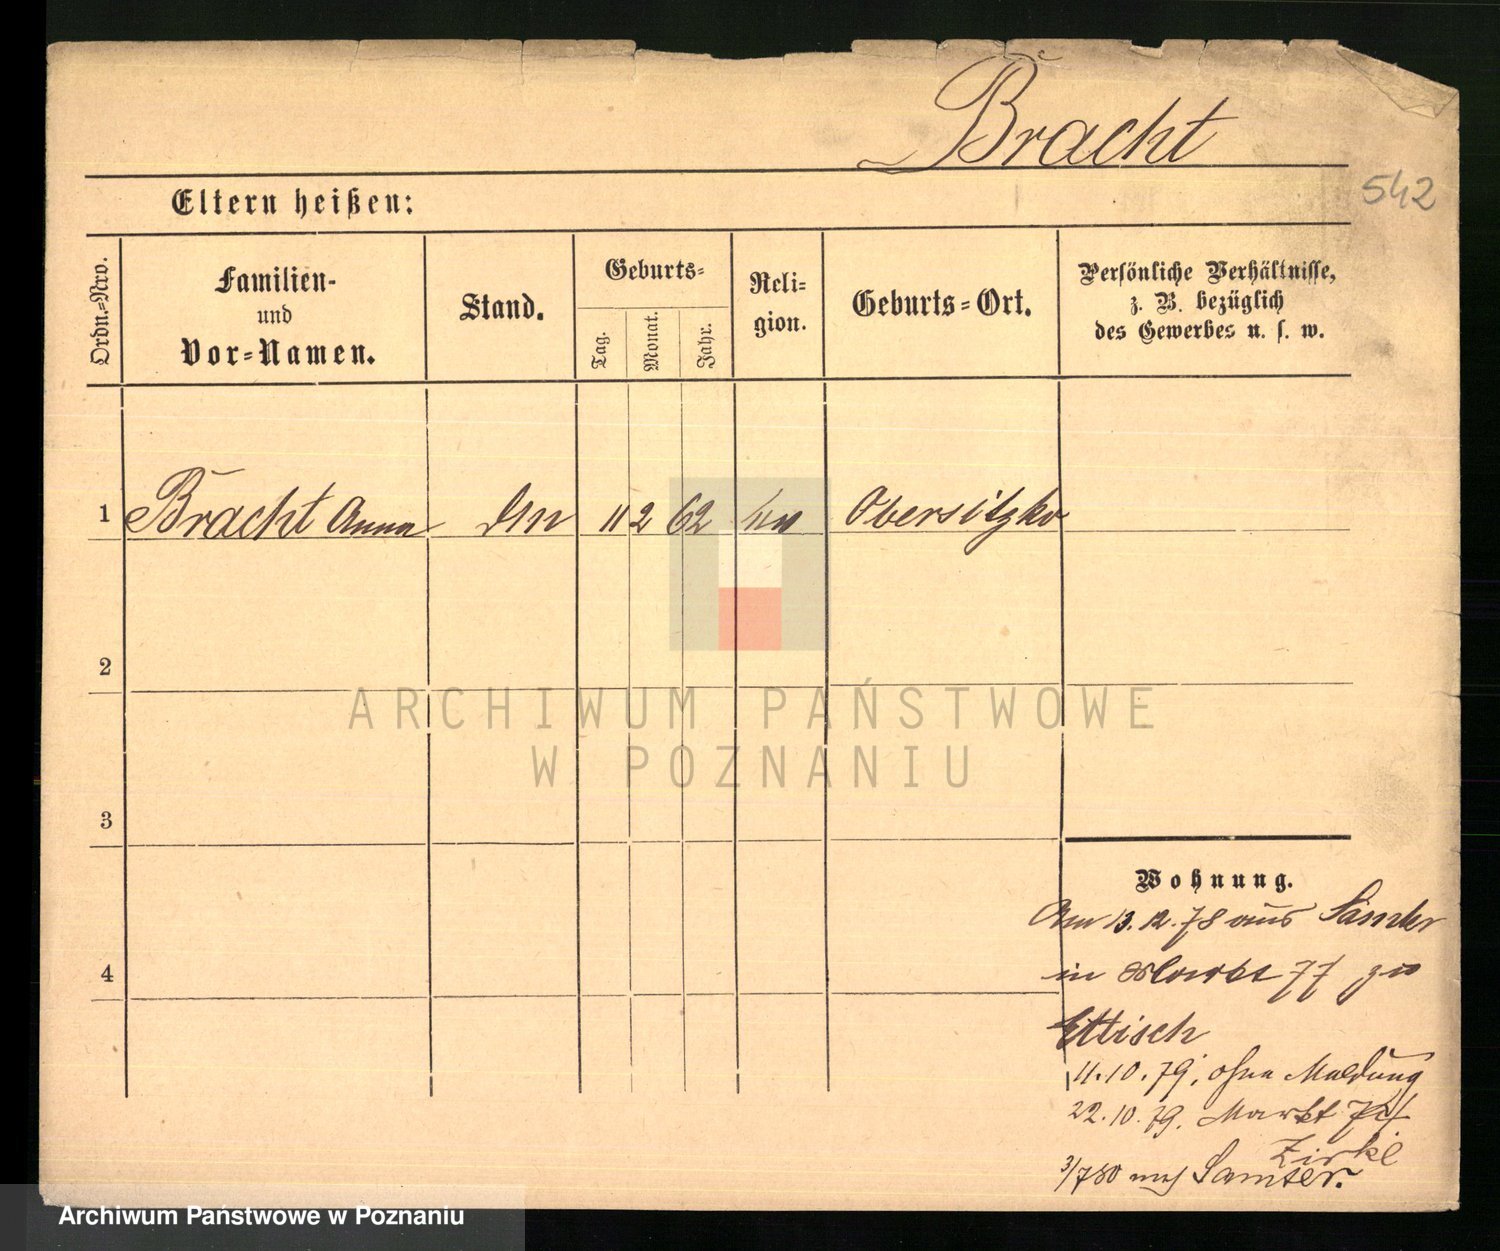 Bracht
542
Eltern heißen:
Ordn.=Nro.
Familien-
und
Vor=Namen.
Stand.
Geburts=
Tag.
Monat.
Jahr.
Reli=
gion.
Geburts=Ort.
Persönliche Verhältnisse,
z. B. bezüglich
des Gewerbes u. s. w.
1 Bracht Anna 11 2 62 Obersitzko
2
3
4
ARCHIWUM PAŃSTWOWE
W POZNANIU
Wohnung.
Am 13.12.78 aus Samter
in Markt 77 zu
Ettisch
11.10.79. ohne Meldung
22.10.79. Markt
Zirke
3/7 80 nach Samter.
Archiwum Państwowe w Poznaniu